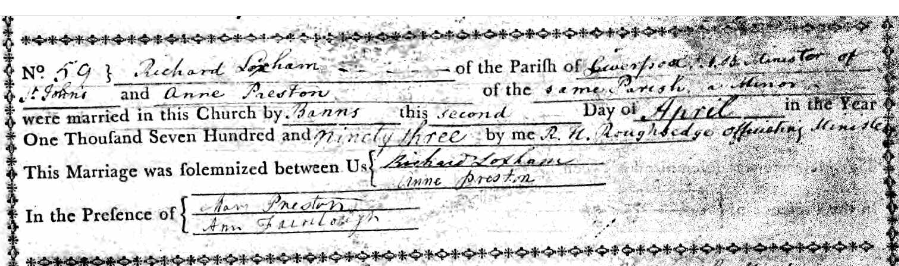 No 59 } Richard Loxham - - - - of the Parish of Liverpool Minister of
St Johns and Anne Preston of the same Parish, a Minor
were married in this Church by Banns this second Day of April in the Year
One Thousand Seven Hundred and ninety three by me R. H. Roughsedge officiating Minister
This Marriage was solemnized between Us { Richard Loxham
Anne Preston
In the Presence of { Mary Preston
Ann Fairclough